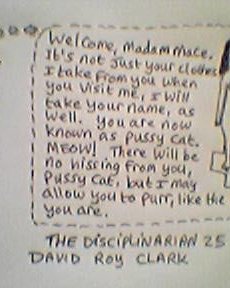 Welcome, Madam Mace.
It's not just your clothes
I take from you when
you visit me, I will
take your name, as
well. You are now
known as pussy cat.
MEOW! There will be
no hissing from you,
pussy cat, but I may
allow you to purr, like the
you are.
THE DISCIPLINARIAN 25
DAVID ROY CLARK